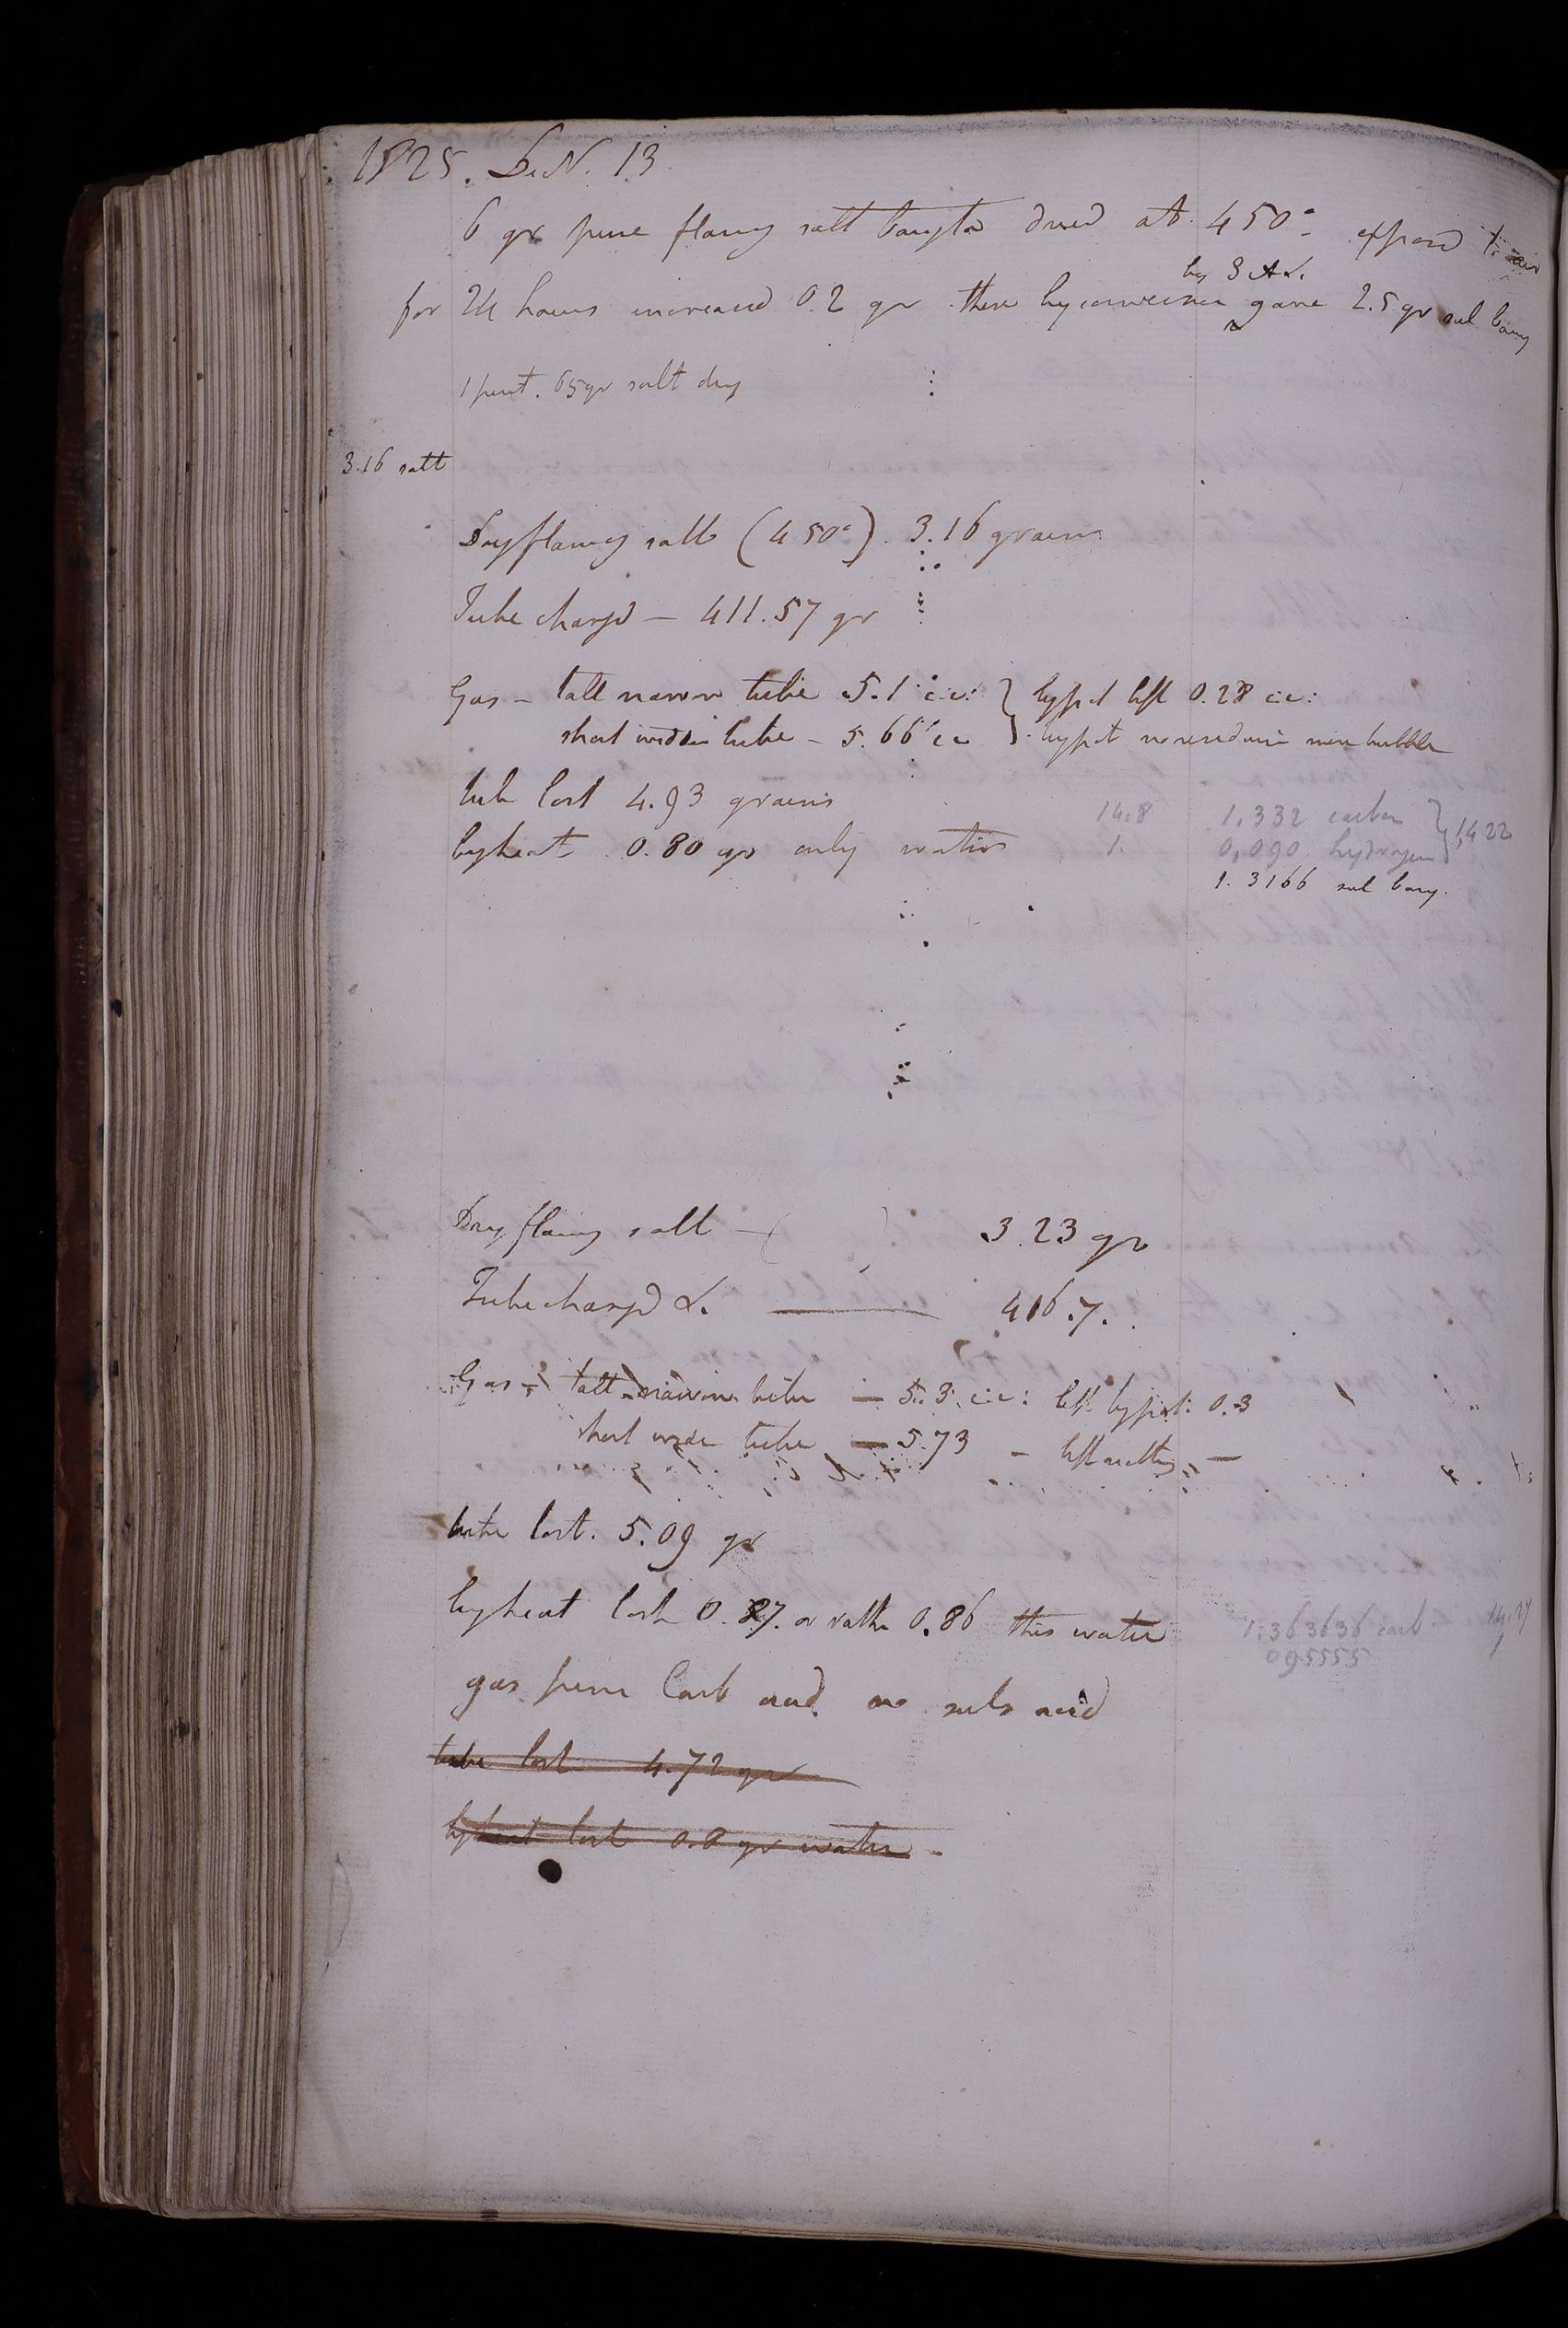 1825. Dec. 13
6 gr pure flamg salt baryta dried at 450° exposed to air
for 24 hours increased 0.2 gr then by conversion gave 2.5 gr sul bary
by S A &.
1 part. 65 gr salt dry
3.16 salt
Dry flamg salt (450°). 3.16 grains
Tube charged — 411.57 gr
Gas — tall narrow tube 5.1 c.c: } by pot left 0.28 c.c:
short wide tube — 5.66 cc } by pot no residue mere bubble
tube lost 4.93 grains
by heat 0.80 gr only water
14.8 1,332 carbon } 1,422
1. 0,090 hydrogen
1.3166 sul bary.
Dry flamg salt — ( ) 3.23 gr
Tube charged &. — 416.7.
Gas — tall narrow tube — 5.3 c.c: left by pot: 0.3
short wide tube — 5.73 — left nothing —
tube lost. 5.09 gr
by heat lost 0.87. or rather 0.86 this water
1.363636 carb 14.27
095555 1
gas pure Carb acid no sul acid
tube lost 4.72 gr
by heat lost 0.8 gr water